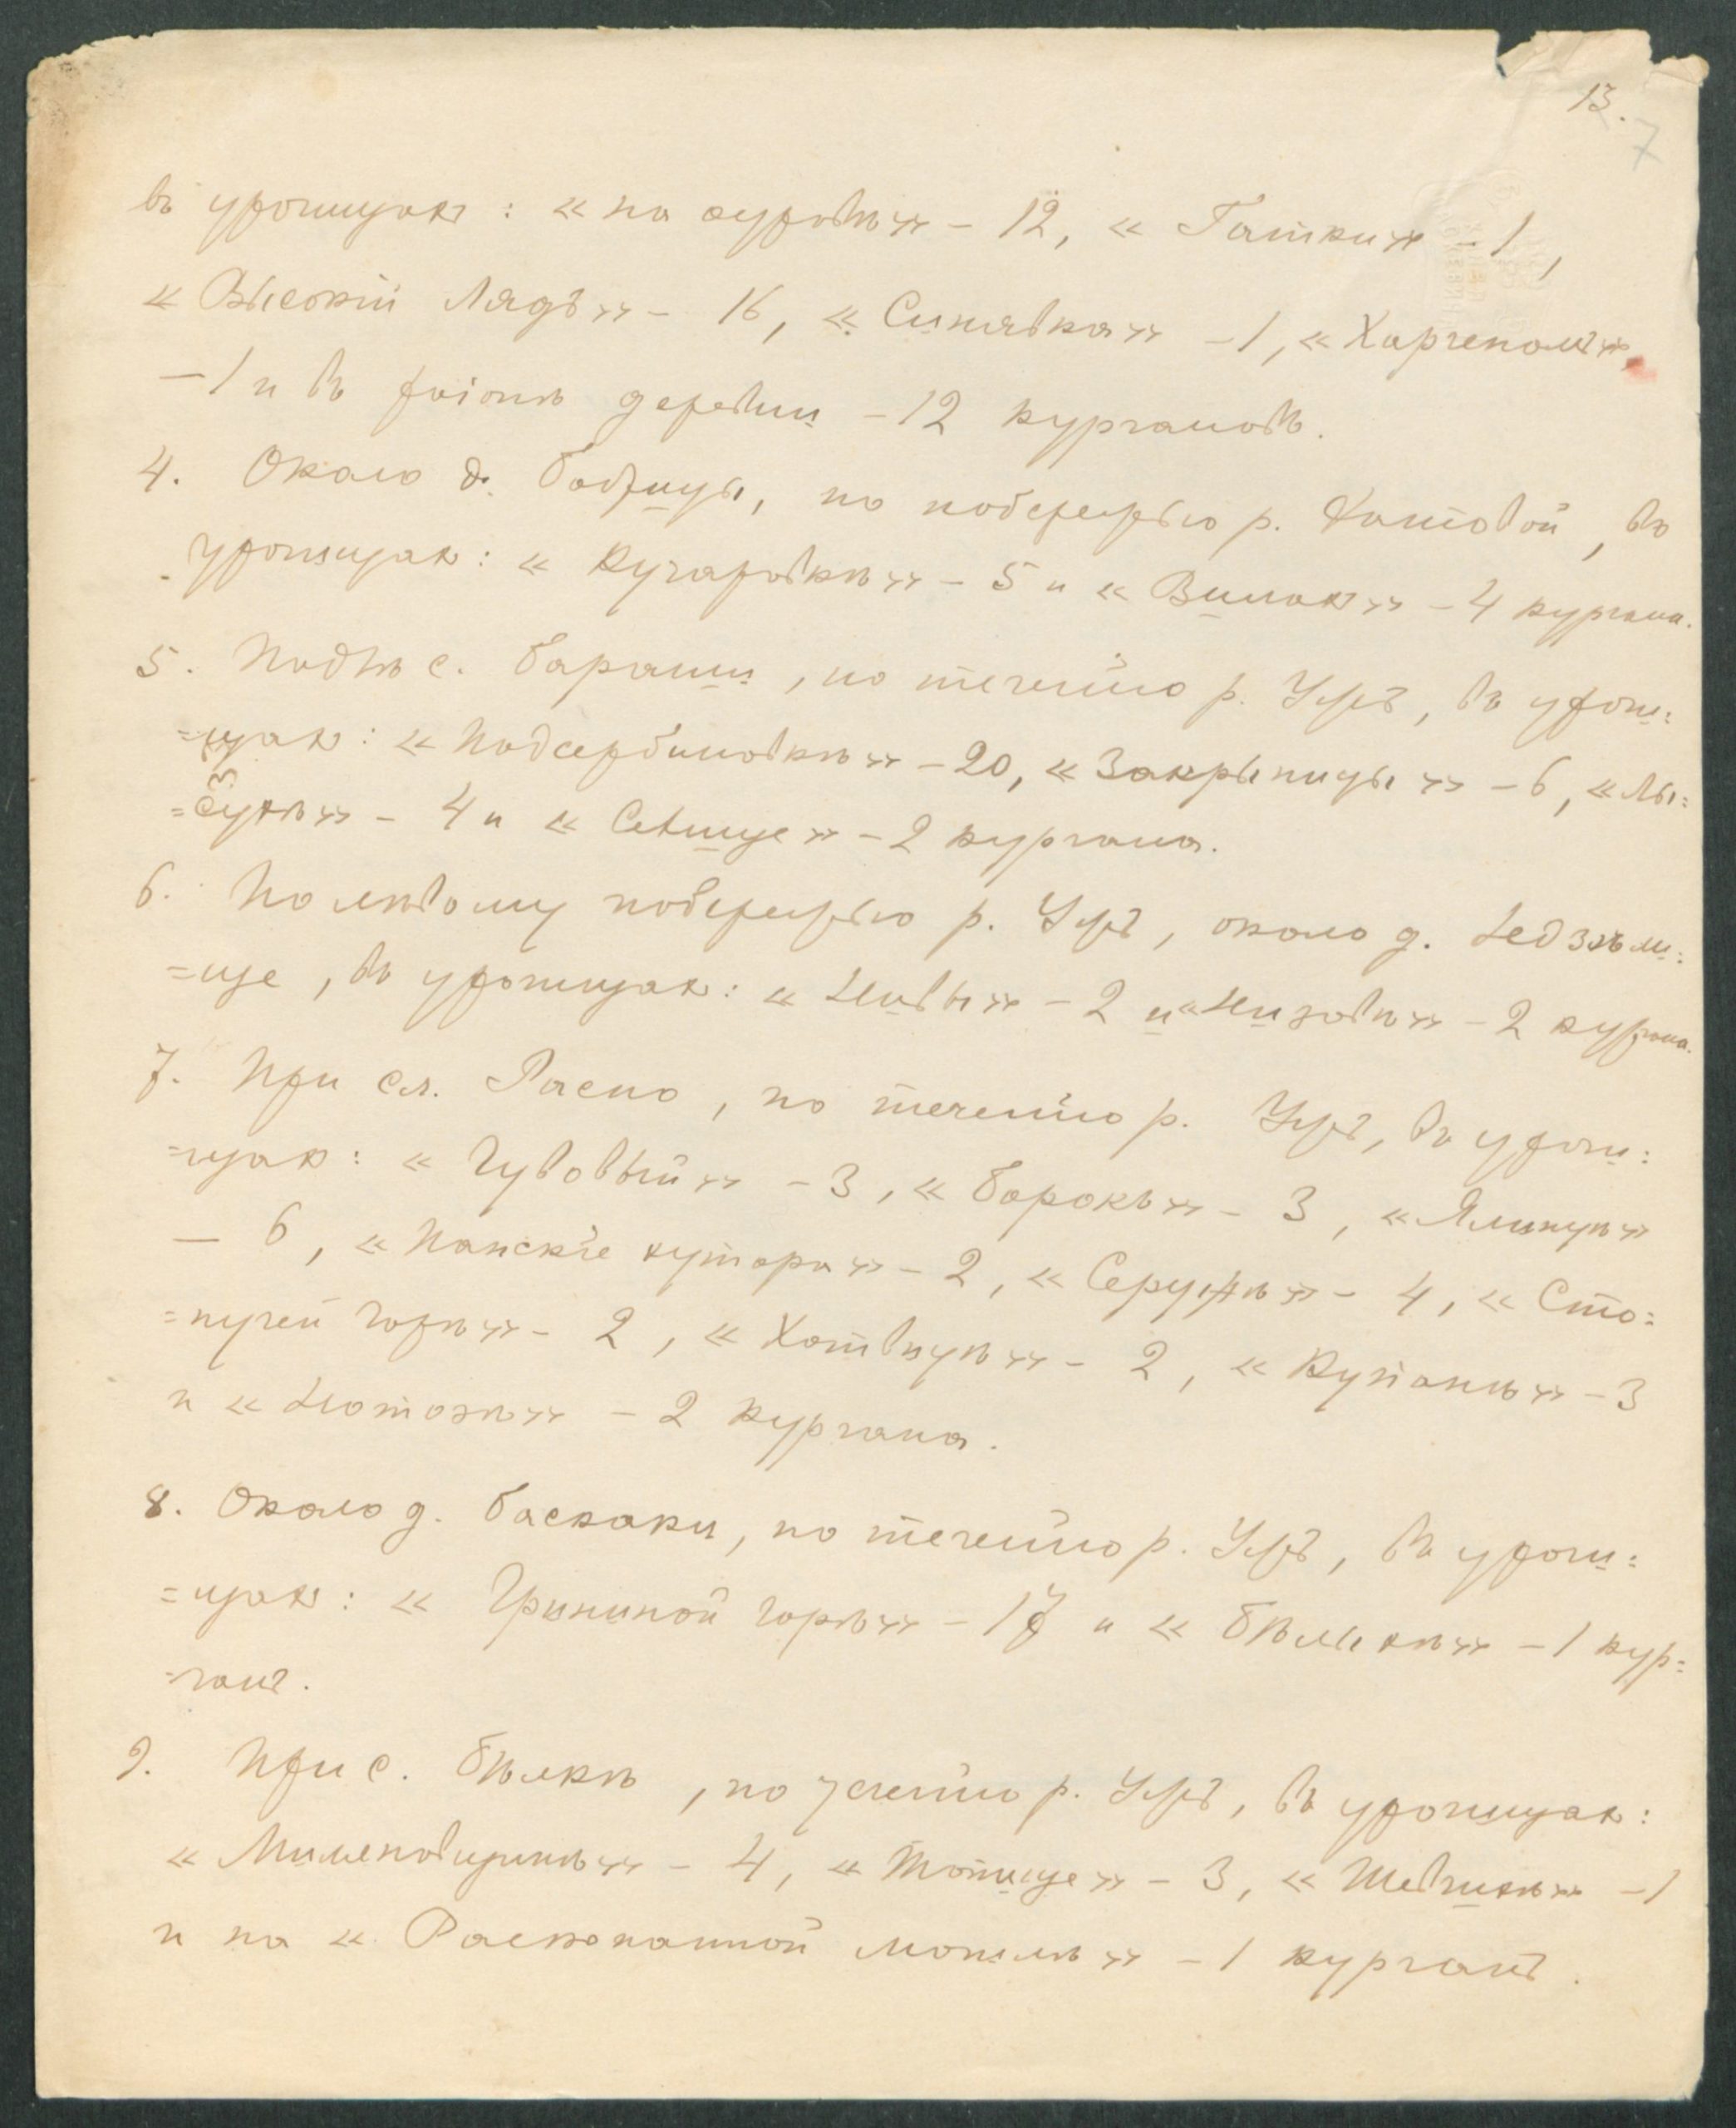 13.
7
въ урочищахъ: « на суровѣ» - 12, « Гатки» - 1,
« Высокій Лядъ» - 16, « Синявка» - 1, « Харченомъ»
- 1 и въ раіонѣ деревни - 12 кургановъ.
4. Около д. Бобрицы, по побережью р. Хотовой, въ
урочищах: « Кучаровкѣ» - 5 и « Вилах» - 4 кургана.
5. Подлѣ с. Бараши, по теченію р. Ужъ, въ уроч:
=щах: « Подсербиновкѣ» - 20, « Закрыницы» - 6, « Лы:
- 4 и « Селище» - 2 кургана.
6. По лѣвому побережью р. Ужъ, около д.
=ще, въ урочищах: « Нивы» - 2 и « Низовѣ» - 2 кургана.
7. При сл. Расно, по теченію р. Ужъ, въ урочи:
=щах: « Чудовый» - 3, « Борокъ» - 3, « Ялинцѣ»
- 6, « Панскіе хутора» - 2, - 4, « Сто:
=пучей горѣ» - 2, - 2, - 3
и - 2 кургана.
8. Около д. Баскаки, по теченію р. Ужъ, въ урочи:
=щах: « Грининой горѣ» - 17 и - 1 кур=
=ганъ.
9. При с. Бѣлкѣ, по теченію р. Ужъ, въ урочищах:
- 4, « Топище» - 3, - 1
и на « Раскопанной могилѣ» - 1 курганъ.